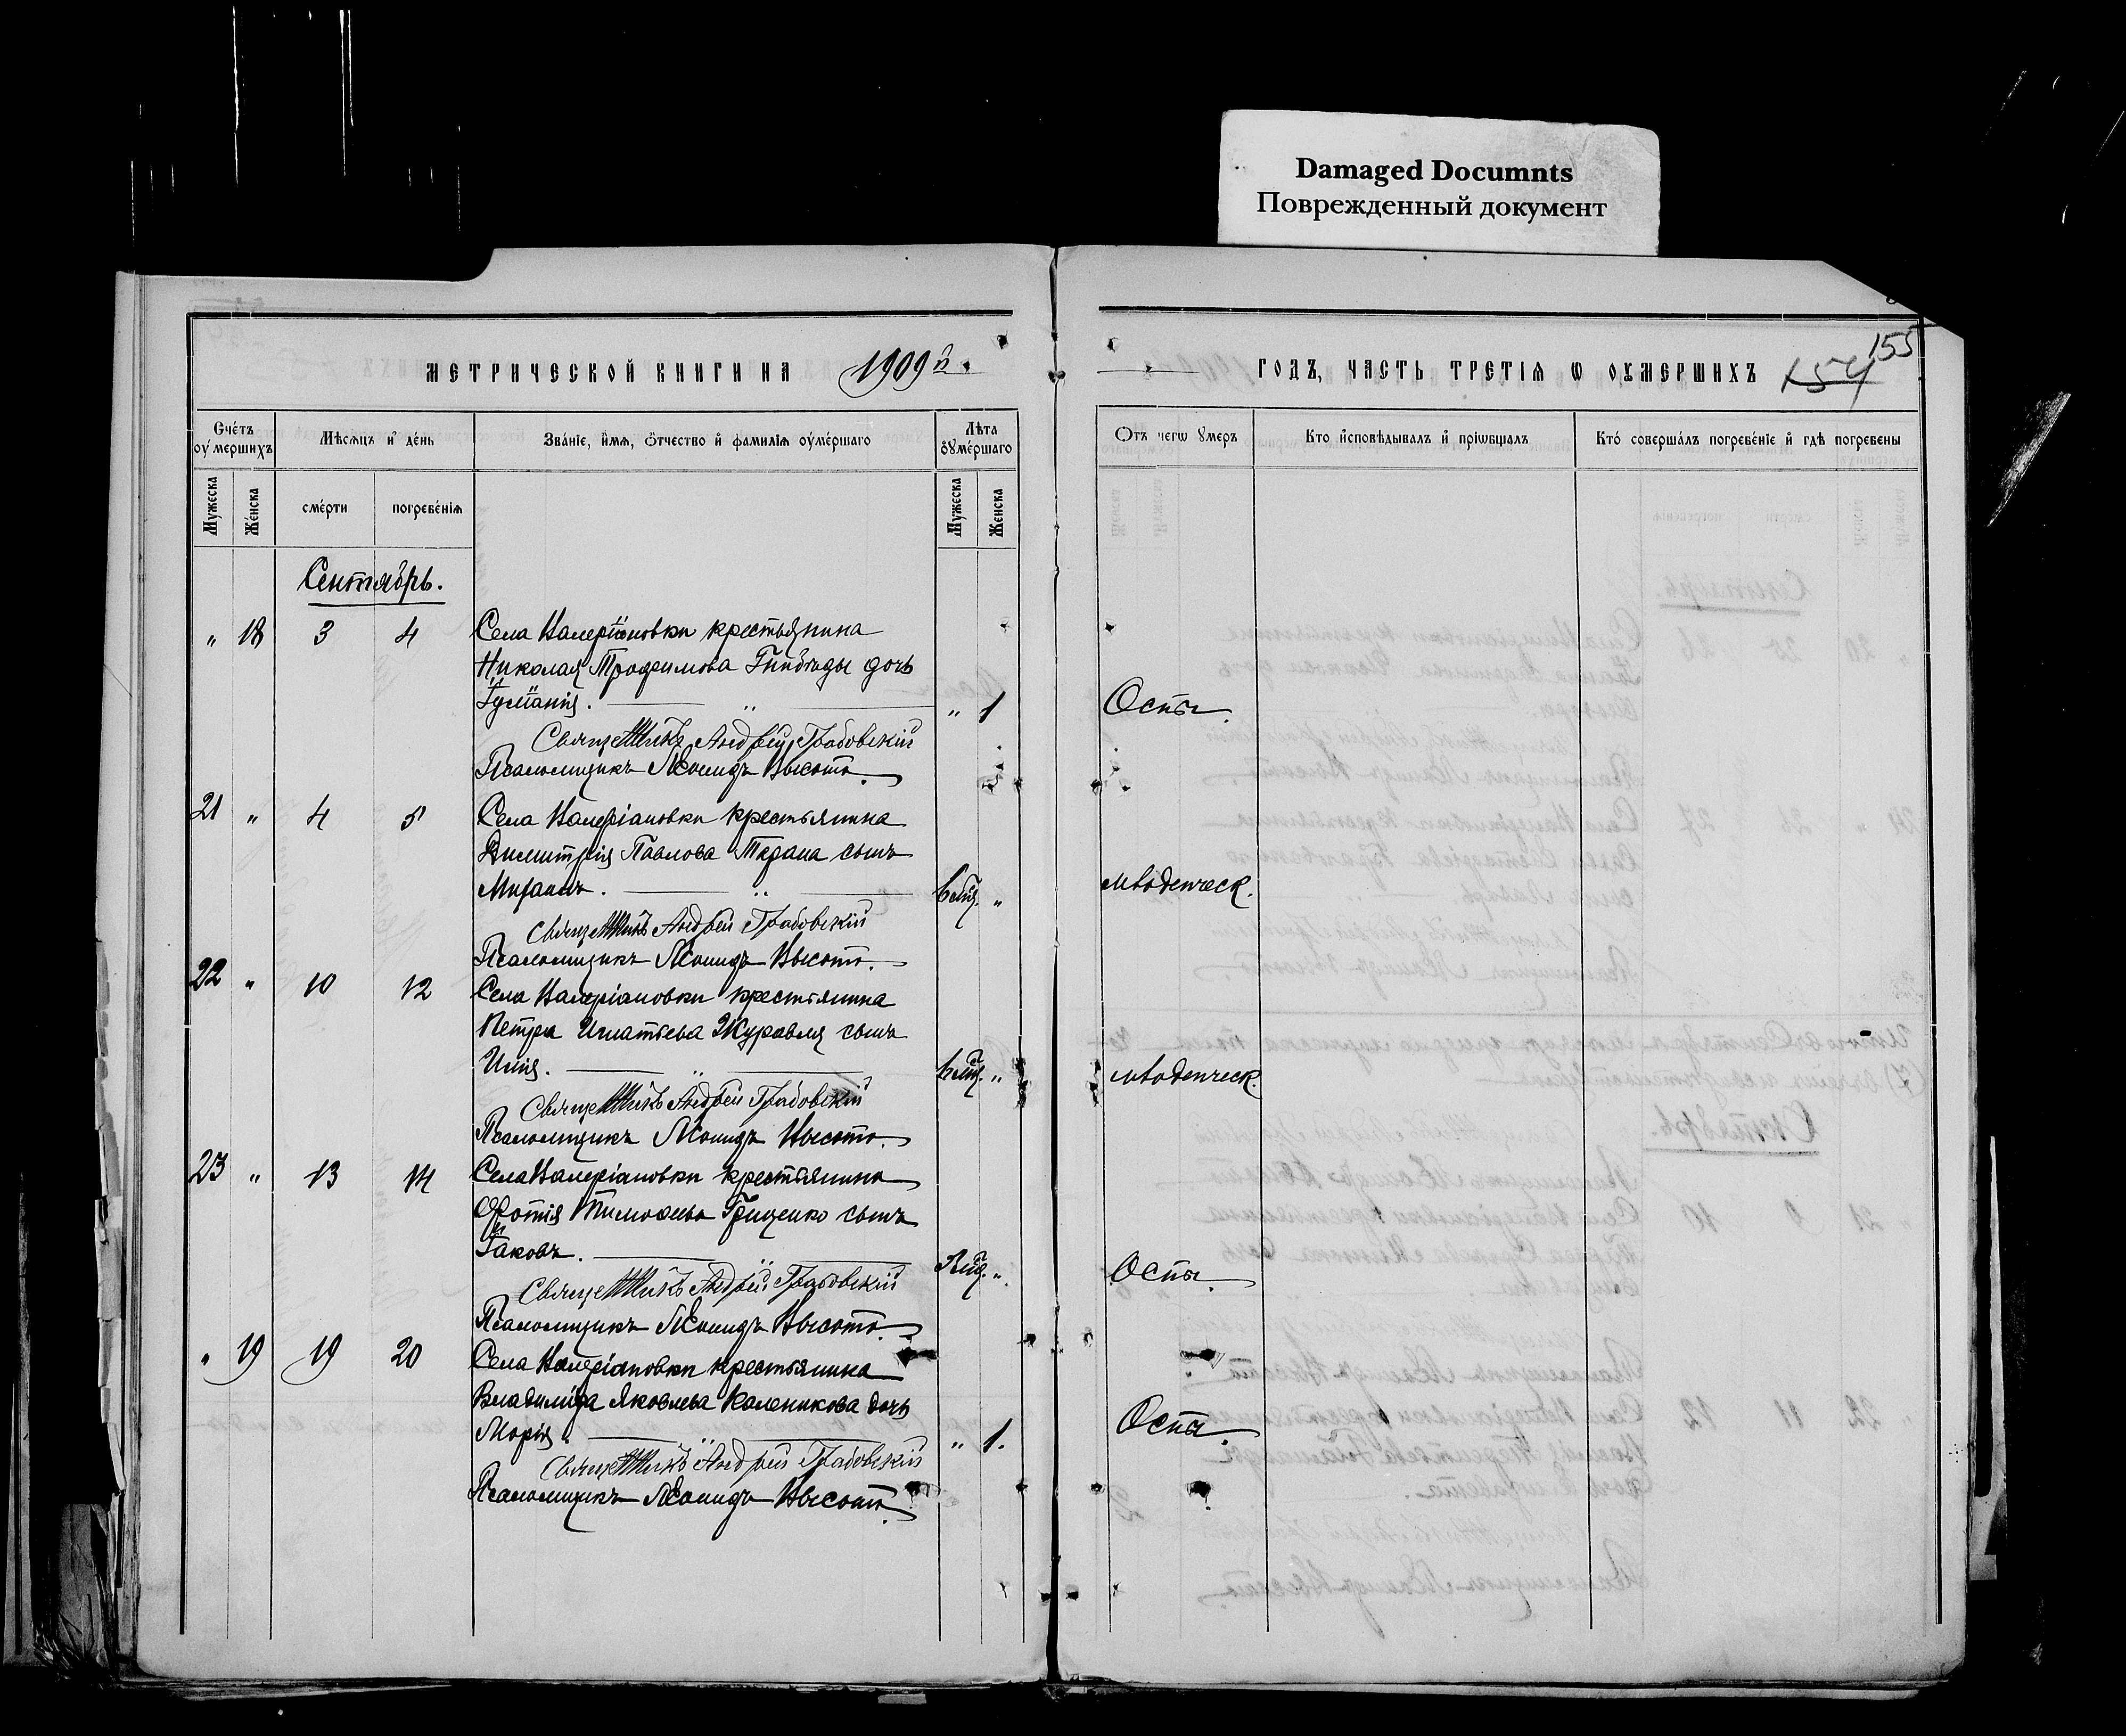 Damaged Documnts
Поврежденный документ
МЕТРИЧЕСКОЙ КНИГИ НА 1909 й.
ГОДЪ, ЧАСТЬ ТРЕТІЯ Ѡ ОУМЕРШИХЪ
154 155
Счетъ оумершихъ
Мѣсяцъ и день
Званіе, имя, отчество и фамилія оумершаго
Лѣта оумершаго
Отъ чегѡ умеръ
Кто исповѣдывалъ и пріѡбщалъ
Кто совершалъ погребеніе и гдѣ погребены
Мужеска Женска смерти погребенія Мужеска Женска
Сентябрь.
" 18 3 4 Села Валеріановки крестьянина
Николая Трофимова дочь
Іуліанія. " " 1 Оспы.
Священникъ Андрей Грабовскій
Псаломщикъ Леонидъ Высота.
21 " 4 5 Села Валеріановки крестьянина
Димитрія Павлова Тарана сынъ
Михаилъ. " " младенческ.
Священникъ Андрей Грабовскій
Псаломщикъ Леонидъ Высота.
22 " 10 12 Села Валеріановки крестьянина
Петра Игнатьева Журавля сынъ
Илія. " " младенческ.
Священникъ Андрей Грабовскій
Псаломщикъ Леонидъ Высота.
23 " 13 14 Села Валеріановки крестьянина
Фотія Тимофеева Гриценко сынъ
Іаковъ. " " Оспы.
Священникъ Андрей Грабовскій
Псаломщикъ Леонидъ Высота.
" 19 19 20 Села Валеріановки крестьянина
Владиміра Яковлева Каленикова дочь
Марія. " " 1. Оспы.
Священникъ Андрей Грабовскій
Псаломщикъ Леонидъ Высота.